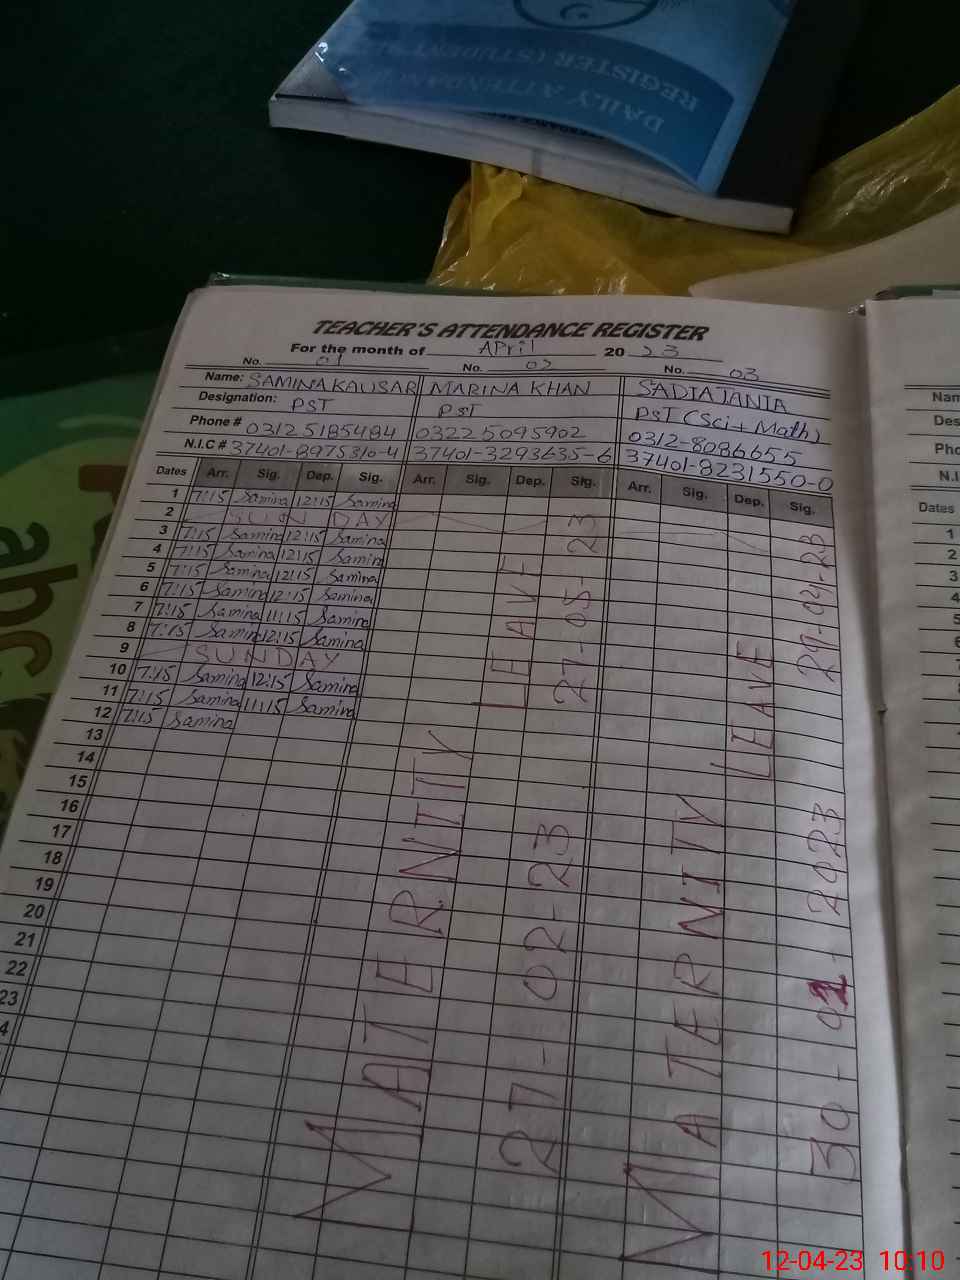 DAILY ATTENDANCE
REGISTER (STUDENT
TEACHER'S ATTENDANCE REGISTER
For the month of APril 20 23
No. 01 No. 02 No. 03
Name: SAMINA KAUSAR MARINA KHAN SADIA JANIA
Designation: PST PST PST (Sci + Math)
Phone # 03125185484 03225095902 0312-8086655
N.I.C # 37401-8975310-4 37401-3293635-6 37401-8231550-0
Dates Arr. Sig. Dep. Sig. Arr. Sig. Dep. Sig. Arr. Sig. Dep. Sig.
1 7:15 Samina 12:15 Samina
2 SUN DAY
3 7:15 Samina 12:15 Samina
4 7:15 Samina 12:15 Samina
5 7:15 Samina 12:15 Samina
6 7:15 Samina 12:15 Samina
7 7:15 Samina 11:15 Samina
8 7:15 Samina 12:15 Samina
9 SUNDAY
10 7:15 Samina 12:15 Samina
11 7:15 Samina 11:15 Samina
12 7:15 Samina
13
14
15
16
17
18
19
20
21
22
23
4
MATERNITY LEAVE
27-02-23 27-05-23
MATERNITY LEAVE
30-01-2023 29-04-23
Nam
Des
Pho
N.I
Dates
1
2
3
4
5
6
7
abc
12-04-23 10:10